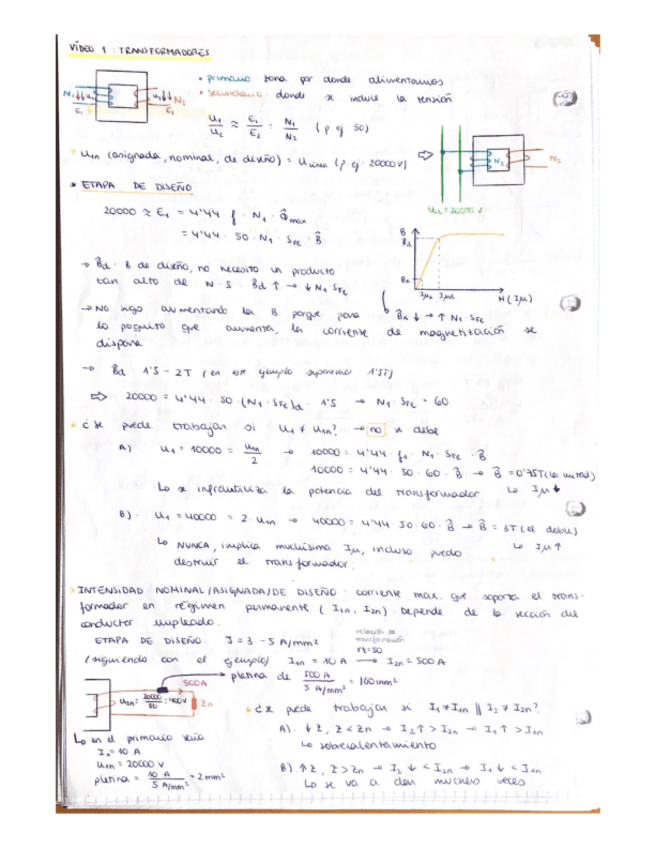 VÍDEO 1 : TRANSFORMADORES
• primario zona por donde alimentamos
• secundario donde se induce la tensión
N1 u1 u2 N2
E1 E2
U1/U2 ≈ E1/E2 = N1/N2 (p ej 50)
U1n (asignada, nominal, de diseño) = U línea (p. ej. 20000 V) ⇨
N1 N2
UL = 20000 V
* ETAPA DE DISEÑO
20000 ≈ E1 = 4'44 · f · N1 · Φ̂max
= 4'44 · 50 · N1 · SFe · B̂
B
Bd
Ba
Iμa Iμd
H (Iμ)
→ B̂d · B de diseño, no necesito un producto
tan alto de N · S. B̂d ↑ → ↓ N1 SFe
B̂a ↓ → ↑ N1 · SFe
→ NO sigo aumentando la B porque para
lo poquito que aumenta, la corriente de magnetización se
dispara
→ B̂d : 1'5 - 2T (en este ejemplo suponemos 1'5T)
⇨ 20000 = 4'44 · 50 · (N1 · SFe)d · 1'5 → N1 · SFe = 60
* ¿se puede trabajar si U1 ≠ U1n? → no se debe
A) · U1 = 10000 = U1n/2 → 10000 = 4'44 · f1 · N1 · SFe · B̂
10000 = 4'44 · 50 · 60 · B̂ → B̂ = 0'75T (la mitad)
Lo se infrautiliza la potencia del transformador ↳ Iμ ↓
B) · U1 = 40000 = 2 · U1n → 40000 = 4'44 · 50 · 60 · B̂ → B̂ = 3T (el doble)
↳ NUNCA, implica muchísima Iμ, incluso puedo ↳ Iμ ↑
destruir el transformador.
> INTENSIDAD NOMINAL / ASIGNADA / DE DISEÑO : corriente max. que soporta el trans-
formador en régimen permanente ( I1n, I2n ) · Depende de la sección del
conductor empleado.
ETAPA DE DISEÑO J = 3 - 5 A/mm²
relación de
transformación
rt = 50
(siguiendo con el ejemplo) I1n = 10 A → I2n = 500 A
500 A → pletina de 500 A / 5 A/mm² = 100 mm²
U2n = 20000/50 = 400V Zn
↳ en el primario sería
In = 10 A
U1n = 20000 V
pletina = 10 A / 5 A/mm² = 2 mm²
* ¿se puede trabajar si I1 ≠ I1n || I2 ≠ I2n?
A) · ↓ Z, Z < Zn → I2 ↑ > I2n → I1 ↑ > I1n
↳ sobrecalentamiento
B) · ↑ Z, Z > Zn → I2 ↓ < I2n → I1 ↓ < I1n
↳ se va a dar muchas veces